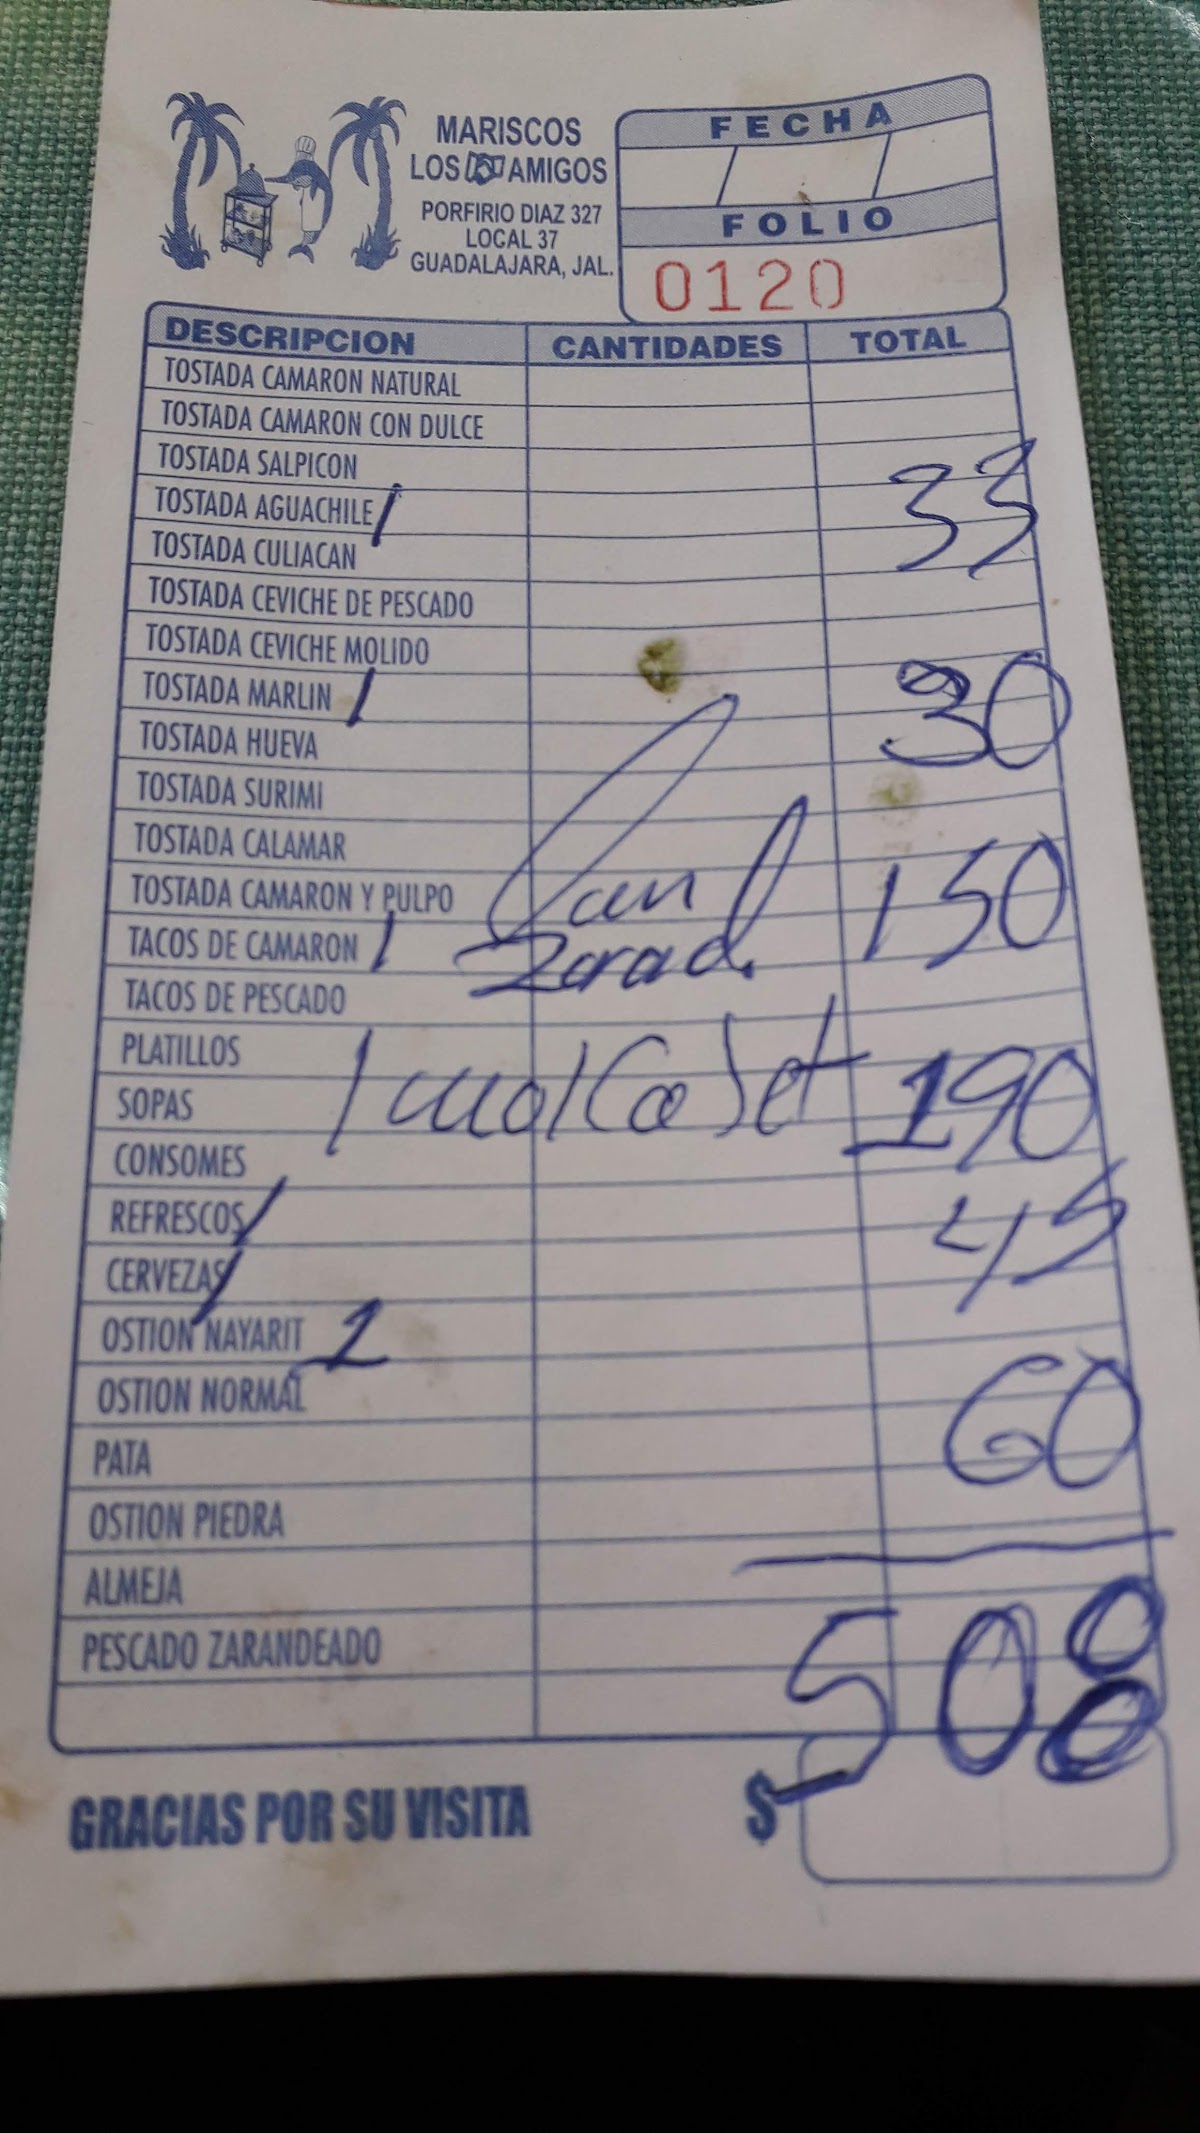 MARISCOS
LOS AMIGOS
PORFIRIO DIAZ 327
LOCAL 37
GUADALAJARA, JAL.
FECHA
FOLIO
0120
DESCRIPCION CANTIDADES TOTAL
TOSTADA CAMARON NATURAL
TOSTADA CAMARON CON DULCE
TOSTADA SALPICON
TOSTADA AGUACHILE 1 33
TOSTADA CULIACAN
TOSTADA CEVICHE DE PESCADO
TOSTADA CEVICHE MOLIDO
TOSTADA MARLIN 1 30
TOSTADA HUEVA
TOSTADA SURIMI
TOSTADA CALAMAR
TOSTADA CAMARON Y PULPO
TACOS DE CAMARON 1 150
TACOS DE PESCADO
PLATILLOS
SOPAS 1 190
CONSOMES
REFRESCOS / 45
CERVEZAS /
OSTION NAYARIT
OSTION NORMAL 60
PATA
OSTION PIEDRA
ALMEJA
PESCADO ZARANDEADO
508
GRACIAS POR SU VISITA $